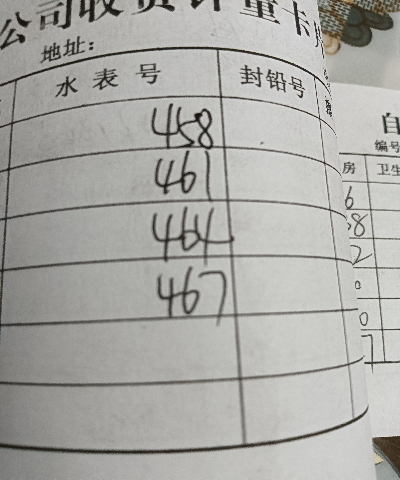 公司收费计量卡片
地址：
水表号 封铅号
458
461
464
467
自
编号
房 卫生
6
58
2
0
0
7